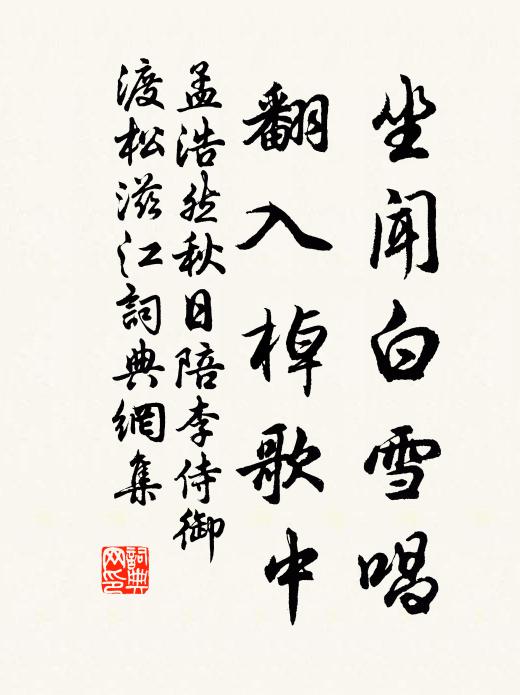 坐闻白雪唱
翻入棹歌中
孟浩然秋日陪李侍御
渡松滋江詞典網集
詞典
网印